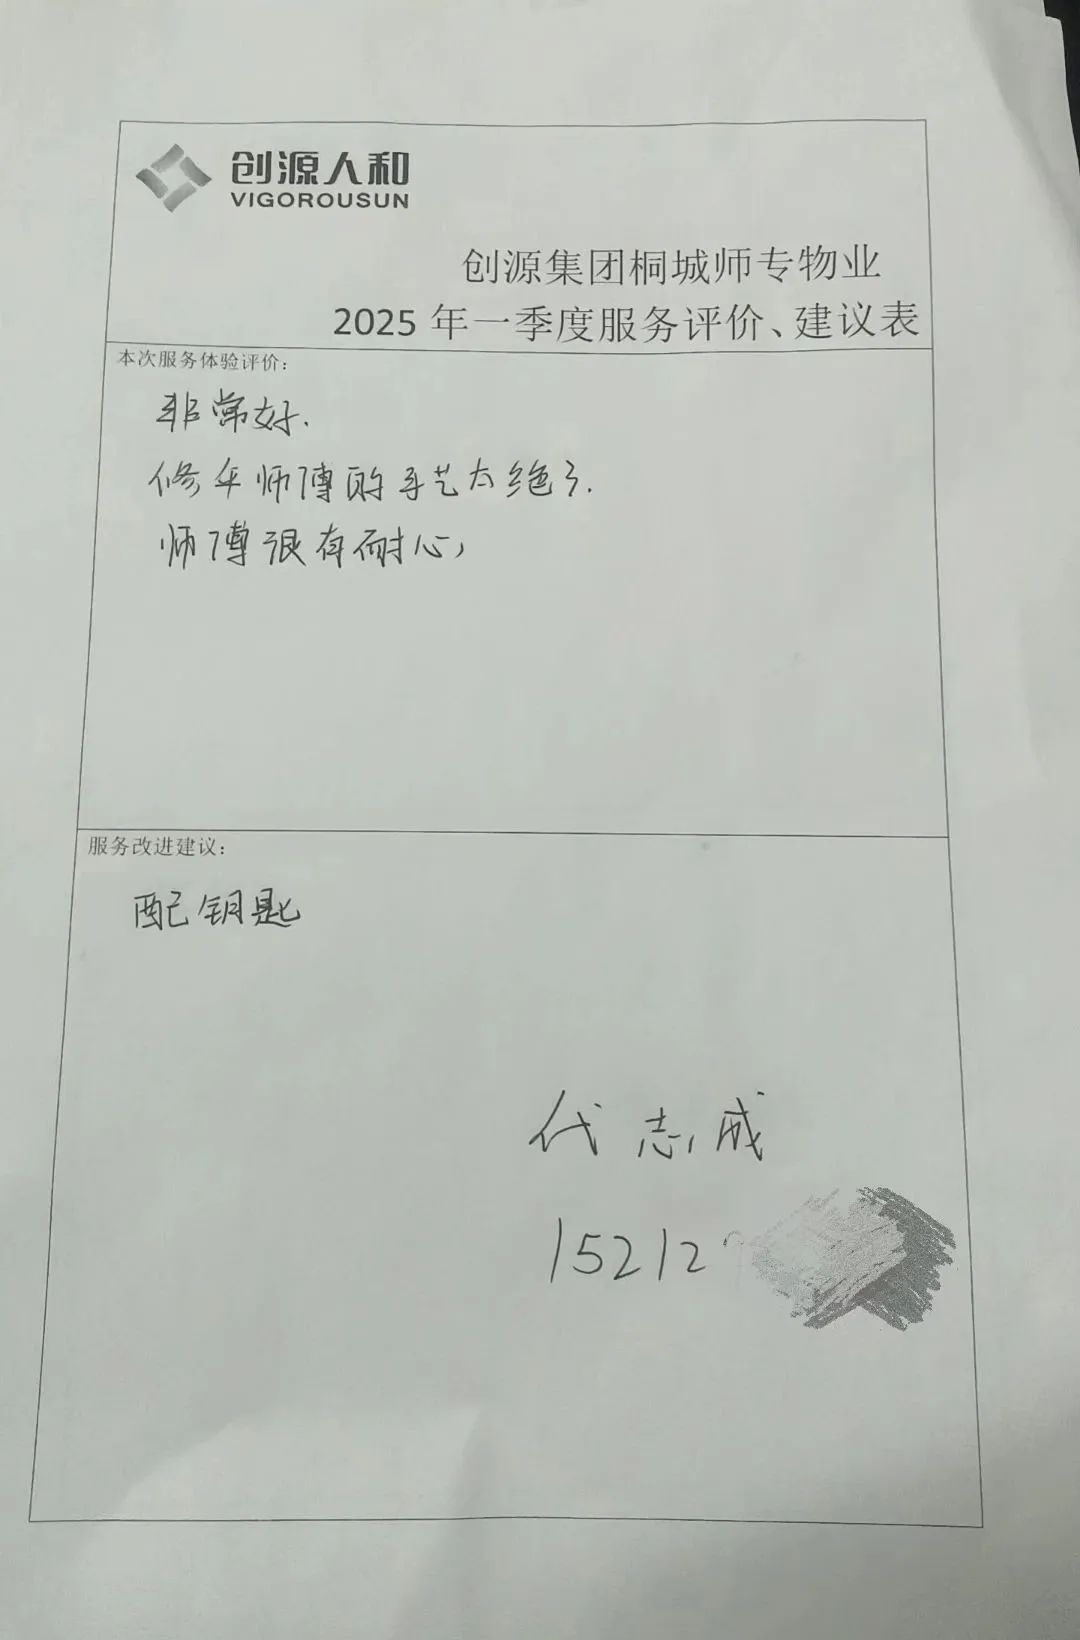 创源人和
VIGOROUSUN
创源集团桐城师专物业
2025年一季度服务评价、建议表
本次服务体验评价：
非常好.
修车师傅的手艺太绝了.
师傅很有耐心，
服务改进建议：
配钥匙
代志成
15212